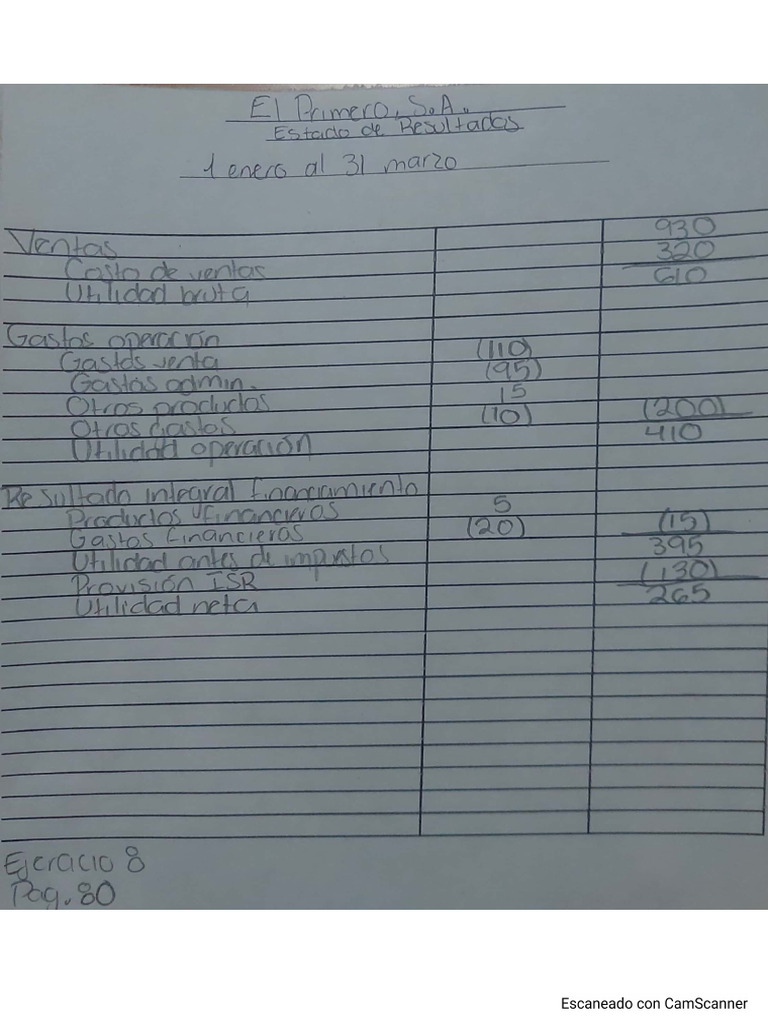 El Primero, S.A.
Estado de Resultados
1 enero al 31 marzo
Ventas 930
Costo de ventas 320
Utilidad bruta 610
Gastos operación
Gastos venta (110)
Gastos admin. (95)
Otros productos 15
Otros Gastos (10) (200)
Utilidad operación 410
Resultado integral financiamiento
Productos financieros 5
Gastos financieros (20) (15)
Utilidad antes de impustos 395
Provisión ISR (130)
Utilidad neta 265
Ejercicio 8
Pag. 80
Escaneado con CamScanner